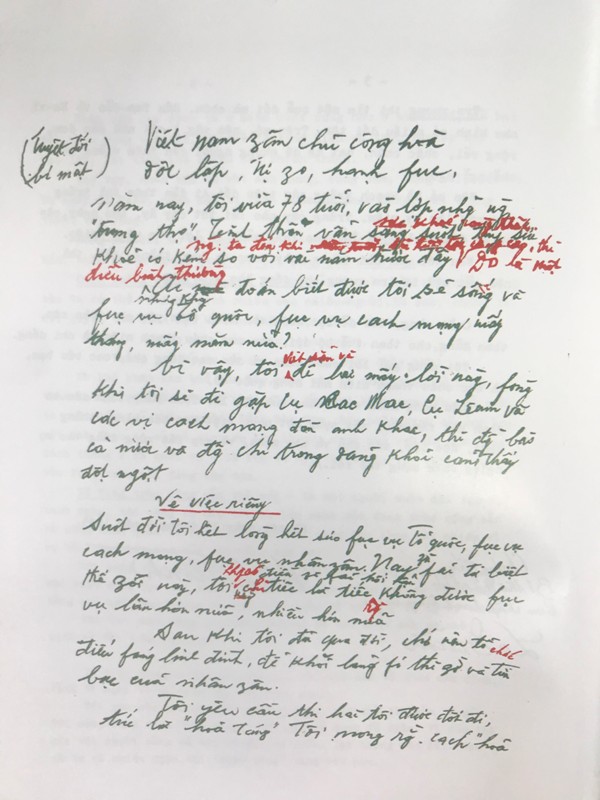 (Tuyệt đối
bí mật)
Việt nam zân chủ cộng hoà
độc lập, tự zo, hạnh fúc,
Năm nay, tôi vừa 78 tuổi, vào lớp những ng
"trung thọ". Tinh thần vẫn sáng suốt, thân thể
khoẻ có kém so với vài năm trước đây
ng. ta đến khi
Đó là một
điều bình thường
đoán biết được tôi sẽ sống và
fục vụ tổ quốc, fục vụ cách mạng mấy
tháng, mấy năm nữa?
Vì vậy, tôi viết sẵn và để lại mấy lời này, fòng
khi tôi sẽ đi gặp cụ Các Mác, Cụ Lênin và
các vị cách mạng đàn anh khác, thì đg bào
cả nước và đg chí trong đảng khỏi cảm thấy
đột ngột.
Về việc riêng
Suốt đời tôi hết lòng hết sức fục vụ Tổ quốc, fục vụ
cách mạng, fục vụ nhân zân. Nay zù fải từ biệt
thế zới này, tôi không có điều gì fải hối hận
chỉ tiếc là tiếc rằng không được fục
vụ lâu hơn nữa, nhiều hơn nữa
Sau khi tôi đã qua đời, chớ nên tổ chức
điếu fúng linh đình, để khỏi lãng fí thì giờ và tiền
bạc của nhân zân.
Tôi yêu cầu thi hài tôi được đốt đi,
tức là "hoả táng". Tôi mong rằng cách "hoả